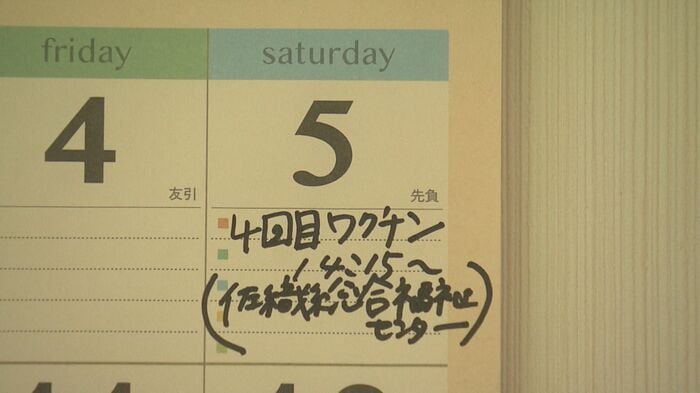 friday
saturday
4
5
友引
先負
4回目ワクチン
14:15～
(佐織総合福祉
センター)